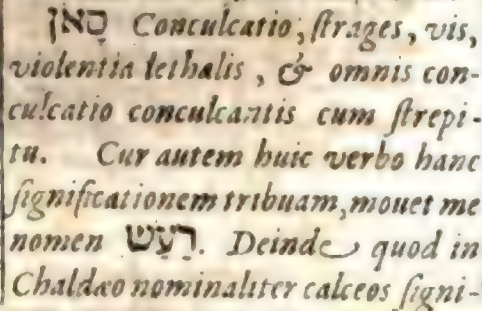 סָאן Conculcatio, ſtrages, vis,
violentia lethalis, & omnis con-
culcatio conculcantis cum ſtrepi-
tu. Cur autem huic verbo hanc
ſignificationem tribuam, mouet me
nomen רַעַש. Deinde quod in
Chaldæo nominaliter calceos ſigni-